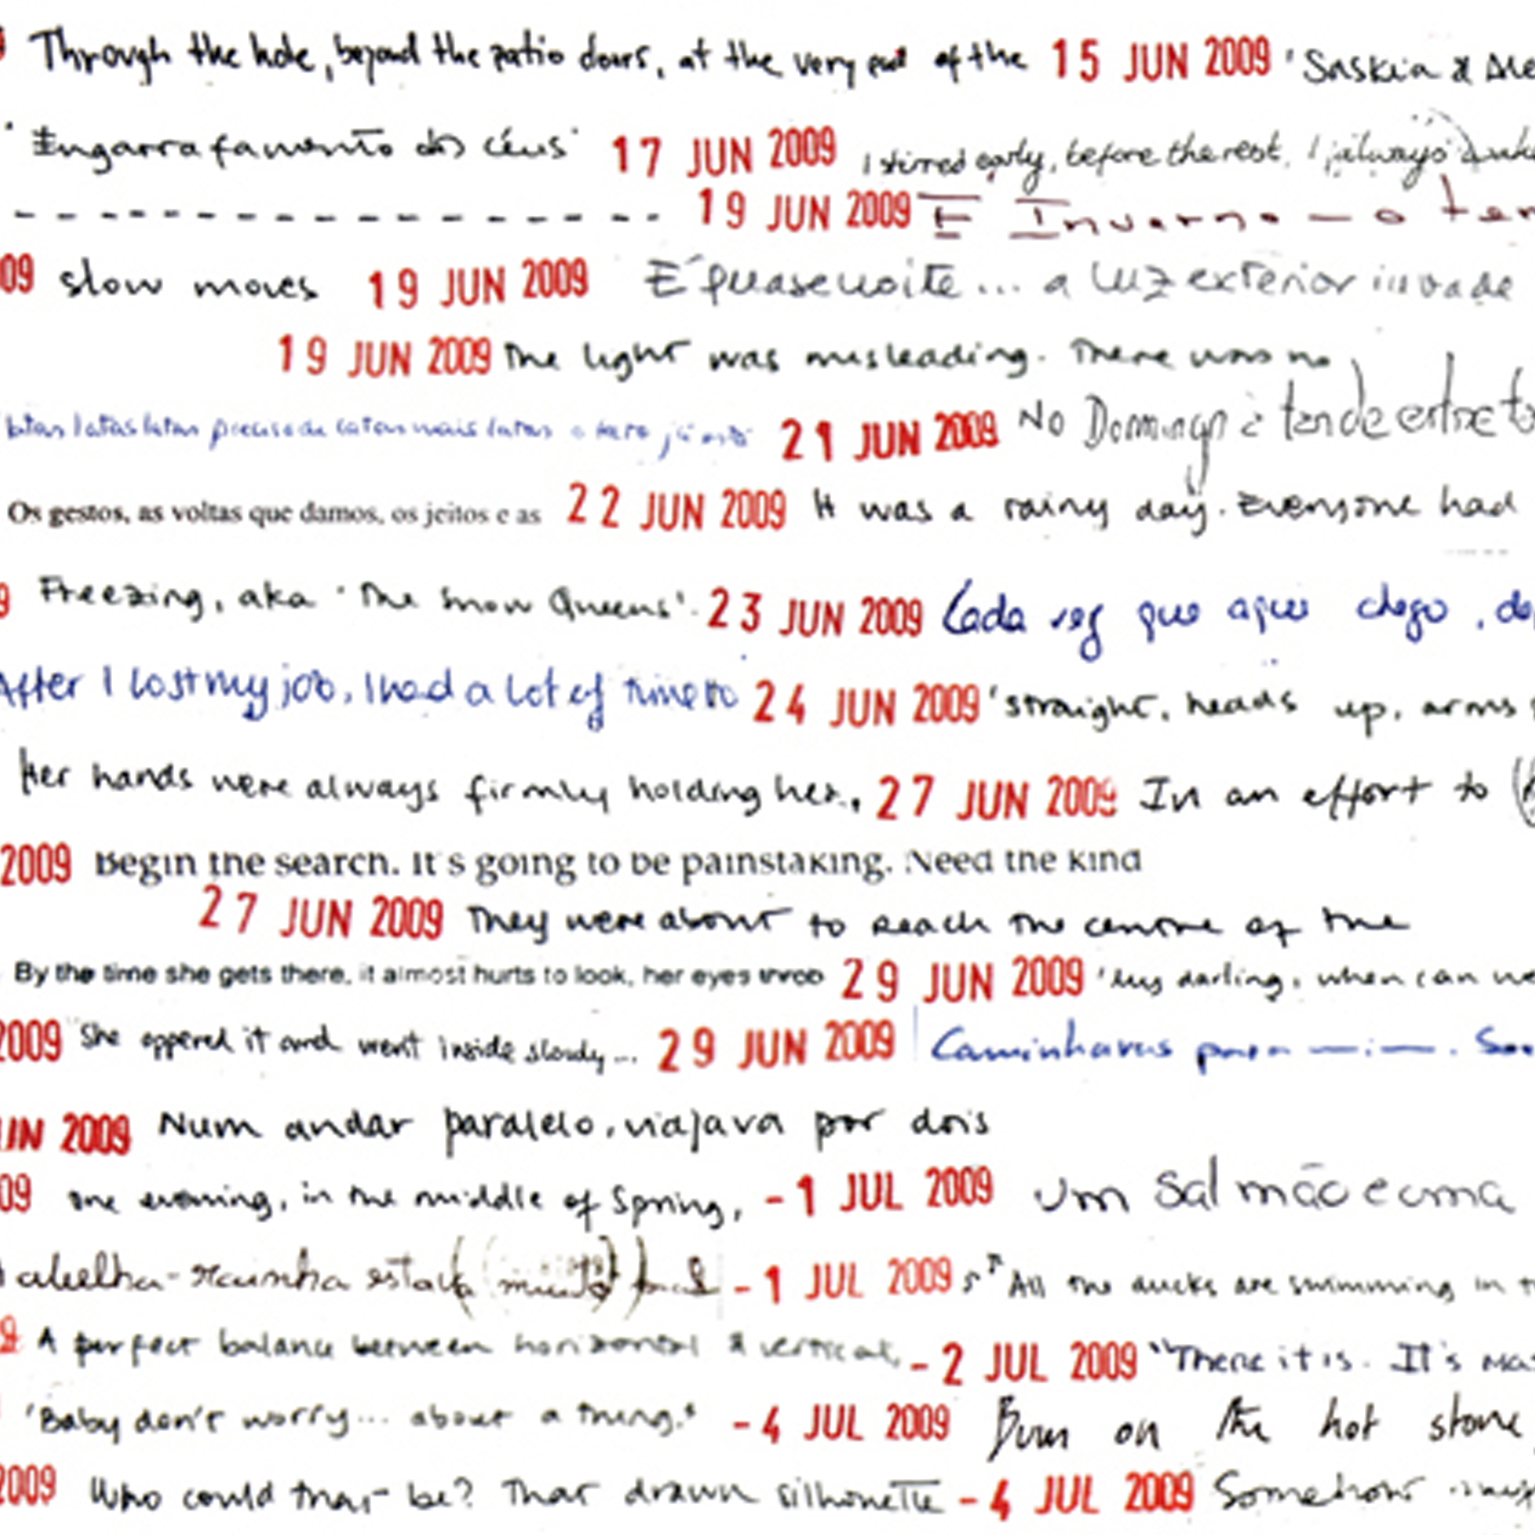 Through the hole, beyond the patio doors, at the very end of the 15 JUN 2009 'Saskia &
'Engarrafamento dos céus' 17 JUN 2009 I stirred early, before the rest. I always
19 JUN 2009 E Inverno — o
09 slow moves 19 JUN 2009 É quase noite... a luz exterior invade
19 JUN 2009 The light was misleading. There was no
latas latas latas mais latas 21 JUN 2009 No Domingo à tarde entre
Os gestos, as voltas que damos, os jeitos e as 22 JUN 2009 It was a rainy day. Everyone had
9 Freezing, aka 'The Snow Queens'. 23 JUN 2009 Cada vez que aqui chego,
After I lost my job, I had a lot of time to 24 JUN 2009 'straight, heads up, arms
Her hands were always firmly holding her, 27 JUN 2009 In an effort to
2009 Begin the search. It's going to be painstaking. Need the kind
27 JUN 2009 They were about to reach the centre of the
By the time she gets there, it almost hurts to look, her eyes throb 29 JUN 2009 'My darling, when can we
2009 She opened it and went inside slowly... 29 JUN 2009 Caminhavas para — . — .
UN 2009 Num andar paralelo, viajava por dois
09 One evening, in the middle of Spring, -1 JUL 2009 Um salmão e uma
abelha-rainha estava (muito) -1 JUL 2009 All the ducks are swimming in
9 A perfect balance between horizontal & vertical, -2 JUL 2009 "There it is. It's
'Baby don't worry... about a thing.' -4 JUL 2009 Burn on the hot stone
2009 Who could that be? That drawn silhouette -4 JUL 2009 Somehow